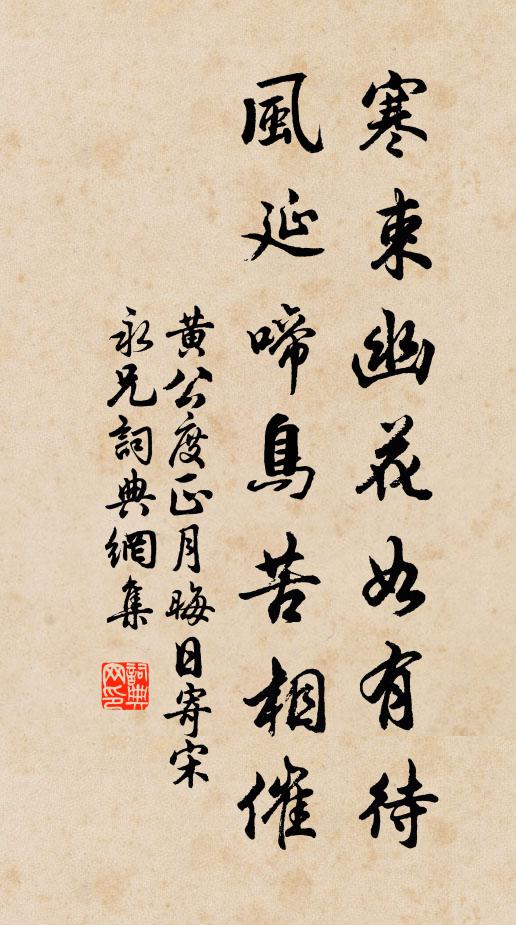 寒束幽花如有待
風延啼鳥苦相催
黃公度正月晦日寄宋
永兄詞典網集
詞典
网印